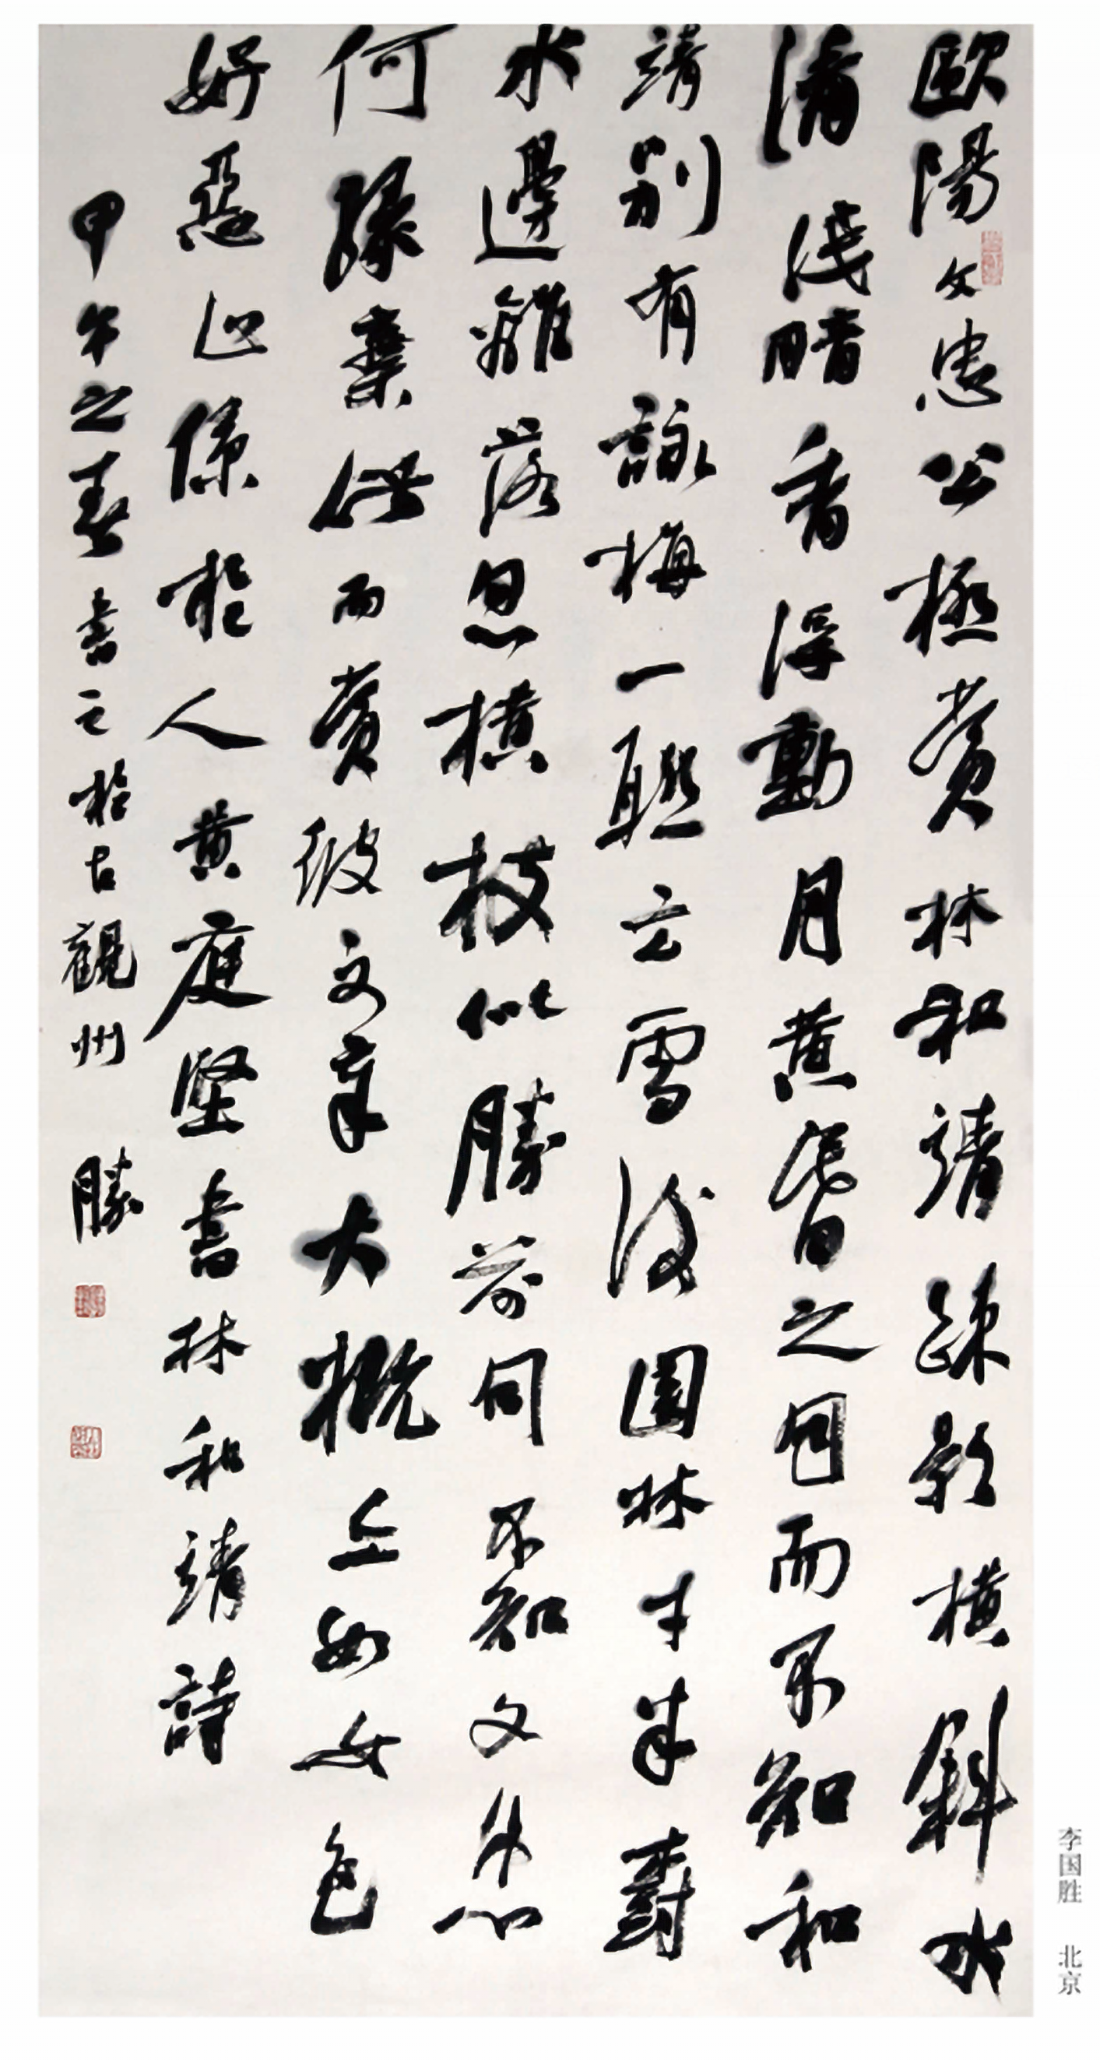 歐陽文忠公極賞林和靖疎影橫斜水
清淺暗香浮動月黃昏之句而不知和
靖別有詠梅一聯云雪後園林才半樹
水邊籬落忽橫枝似勝前句不知文忠
何緣棄此而賞彼文章大概亦如女色
好惡止係於人黃庭堅書林和靖詩
甲午之春書之於古觀州 勝
李国胜 北京